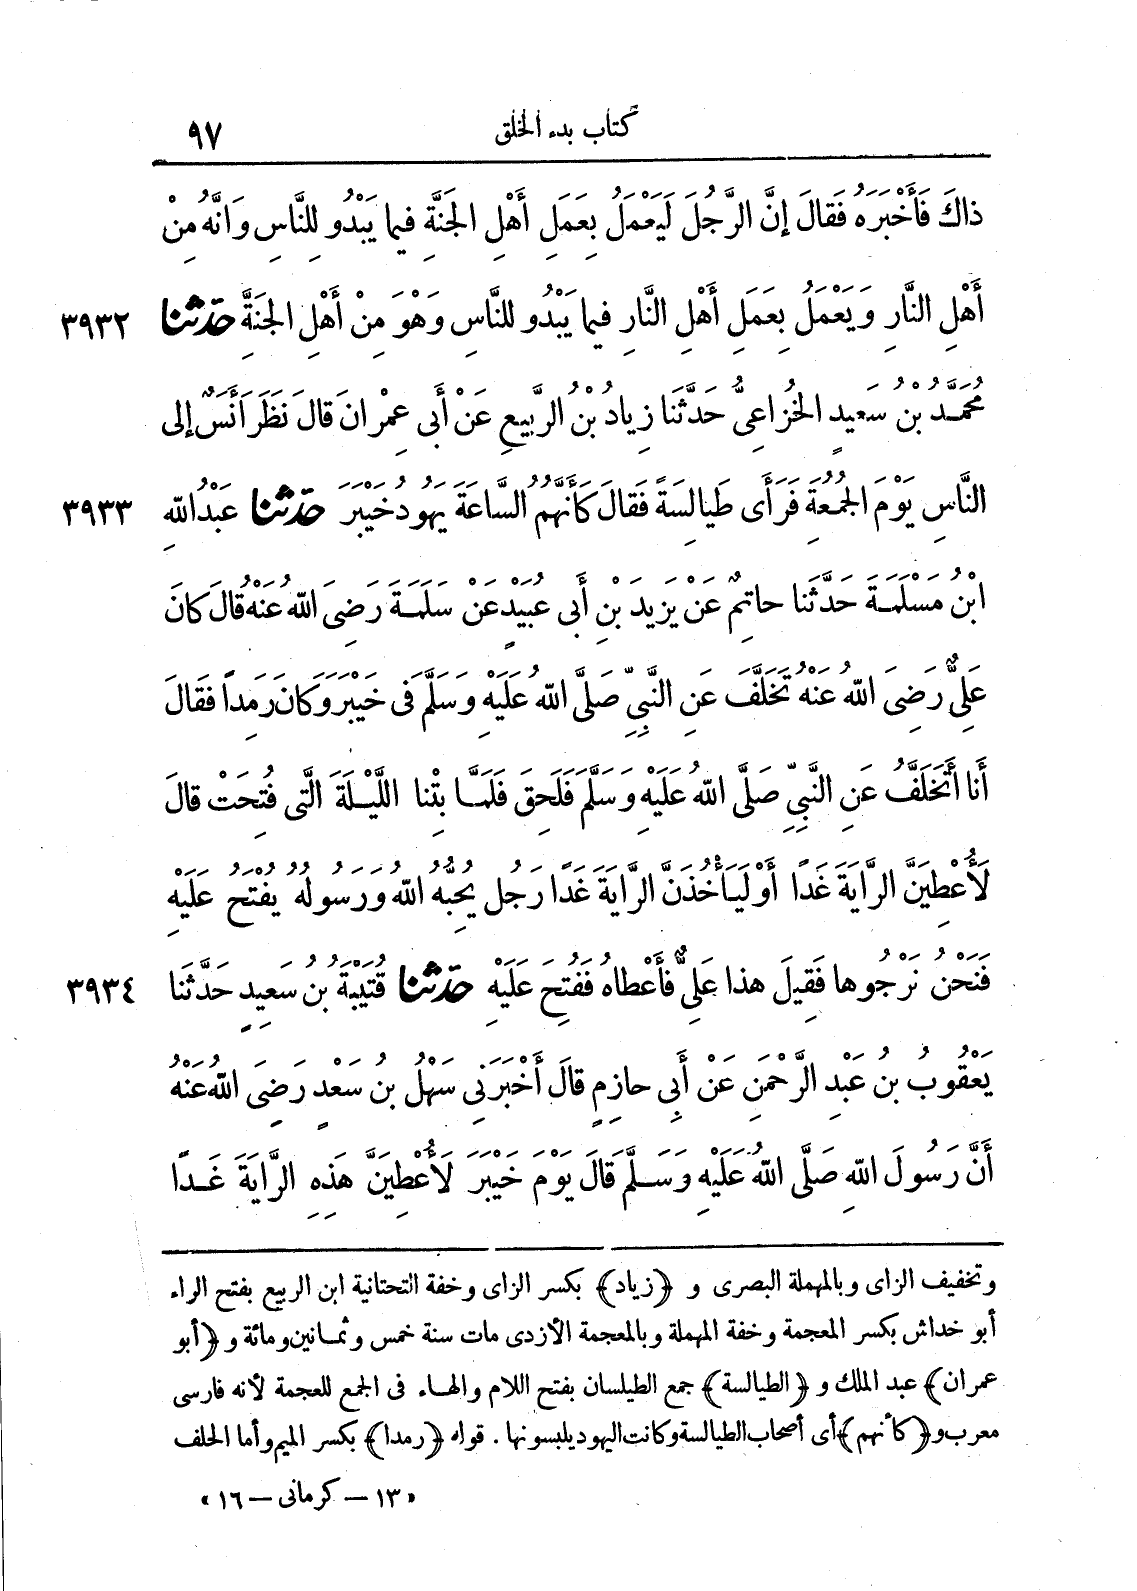 كتاب بدء الخلق ٩٧
ذَاكَ فَأَخْبَرَهُ فَقَالَ إِنَّ الرَّجُلَ لَيَعْمَلُ بِعَمَلِ أَهْلِ الْجَنَّةِ فِيمَا يَبْدُو لِلنَّاسِ وَإِنَّهُ مِنْ
أَهْلِ النَّارِ وَيَعْمَلُ بِعَمَلِ أَهْلِ النَّارِ فِيمَا يَبْدُو لِلنَّاسِ وَهْوَ مِنْ أَهْلِ الْجَنَّةِ حَدَّثَنَا ٣٩٣٢
مُحَمَّدُ بْنُ سَعِيدٍ الْخُزَاعِىُّ حَدَّثَنَا زِيَادُ بْنُ الرَّبِيعِ عَنْ أَبِى عِمْرَانَ قَالَ نَظَرَ أَنَسٌ إِلَى
النَّاسِ يَوْمَ الْجُمُعَةِ فَرَأَى طَيَالِسَةً فَقَالَ كَأَنَّهُمُ السَّاعَةَ يَهُودُ خَيْبَرَ حَدَّثَنَا عَبْدُ اللهِ ٣٩٣٣
ابْنُ مَسْلَمَةَ حَدَّثَنَا حَاتِمٌ عَنْ يَزِيدَ بْنِ أَبِى عُبَيْدٍ عَنْ سَلَمَةَ رَضِىَ اللهُ عَنْهُ قَالَ كَانَ
عَلِىٌّ رَضِىَ اللهُ عَنْهُ تَخَلَّفَ عَنِ النَّبِىِّ صَلَّى اللهُ عَلَيْهِ وَسَلَّمَ فِى خَيْبَرَ وَكَانَ رَمِدًا فَقَالَ
أَنَا أَتَخَلَّفُ عَنِ النَّبِىِّ صَلَّى اللهُ عَلَيْهِ وَسَلَّمَ فَلَحِقَ فَلَمَّا بِتْنَا اللَّيْلَةَ الَّتِى فُتِحَتْ قَالَ
لَأُعْطِيَنَّ الرَّايَةَ غَدًا أَوْ لَيَأْخُذَنَّ الرَّايَةَ غَدًا رَجُلٌ يُحِبُّهُ اللهُ وَرَسُولُهُ يُفْتَحُ عَلَيْهِ
فَنَحْنُ نَرْجُوهَا فَقِيلَ هَذَا عَلِىٌّ فَأَعْطَاهُ فَفُتِحَ عَلَيْهِ حَدَّثَنَا قُتَيْبَةُ بْنُ سَعِيدٍ حَدَّثَنَا ٣٩٣٤
يَعْقُوبُ بْنُ عَبْدِ الرَّحْمَنِ عَنْ أَبِى حَازِمٍ قَالَ أَخْبَرَنِى سَهْلُ بْنُ سَعْدٍ رَضِىَ اللهُ عَنْهُ
أَنَّ رَسُولَ اللهِ صَلَّى اللهُ عَلَيْهِ وَسَلَّمَ قَالَ يَوْمَ خَيْبَرَ لَأُعْطِيَنَّ هَذِهِ الرَّايَةَ غَدًا
وتخفيف الزاى وبالمهملة البصرى و ﴿زياد﴾ بكسر الزاى وخفة التحتانية ابن الربيع بفتح الراء
أبو خداش بكسر المعجمة وخفة المهملة وبالمعجمة الأزدى مات سنة خمس وثمانين ومائة و ﴿أبو
عمران﴾ عبد الملك و ﴿الطيالسة﴾ جمع الطيلسان بفتح اللام والهاء فى الجمع للعجمة لأنه فارسى
معرب و ﴿كأنهم﴾ أى أصحاب الطيالسة وكانت اليهود يلبسونها. قوله ﴿رمدا﴾ بكسر الميم وأما الحلف
«١٣ – كرمانى – ١٦»